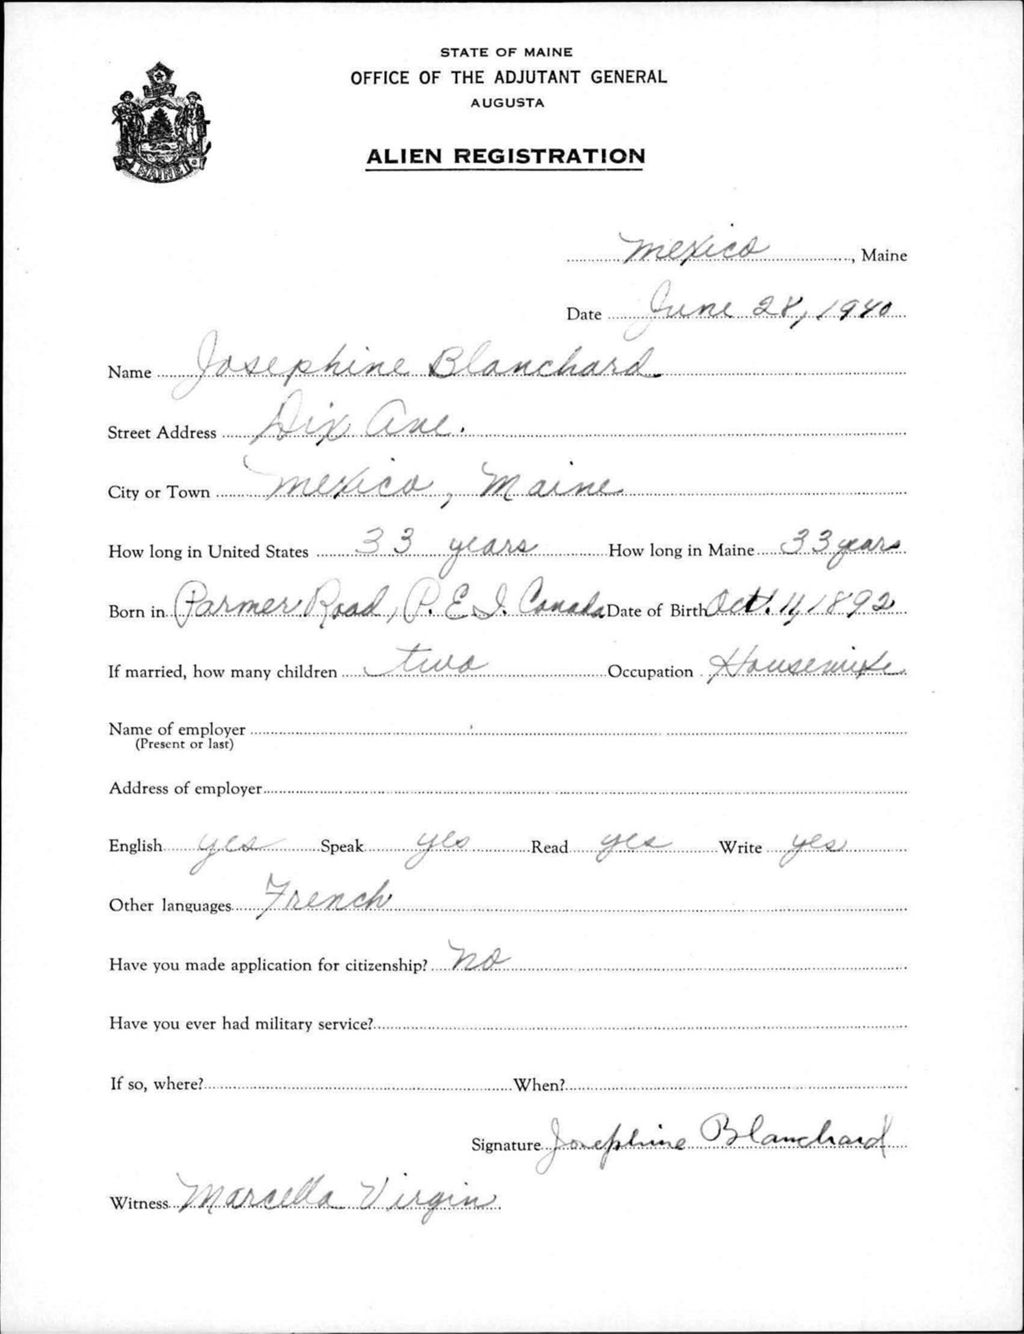 STATE OF MAINE
OFFICE OF THE ADJUTANT GENERAL
AUGUSTA
ALIEN REGISTRATION
MAINE
Mexico, Maine
Date June 28, 1940
Name Josephine Blanchard
Street Address Dix Ave.
City or Town Mexico, Maine
How long in United States 33 years How long in Maine 33 years
Born in Parmer Road, P.E.I. Canada Date of Birth Oct. 11, 1892
If married, how many children two Occupation Housewife
Name of employer
(Present or last)
Address of employer
English yes Speak yes Read yes Write yes
Other languages French
Have you made application for citizenship? No
Have you ever had military service?
If so, where? When?
Signature Josephine Blanchard
Witness Marcella Virgin